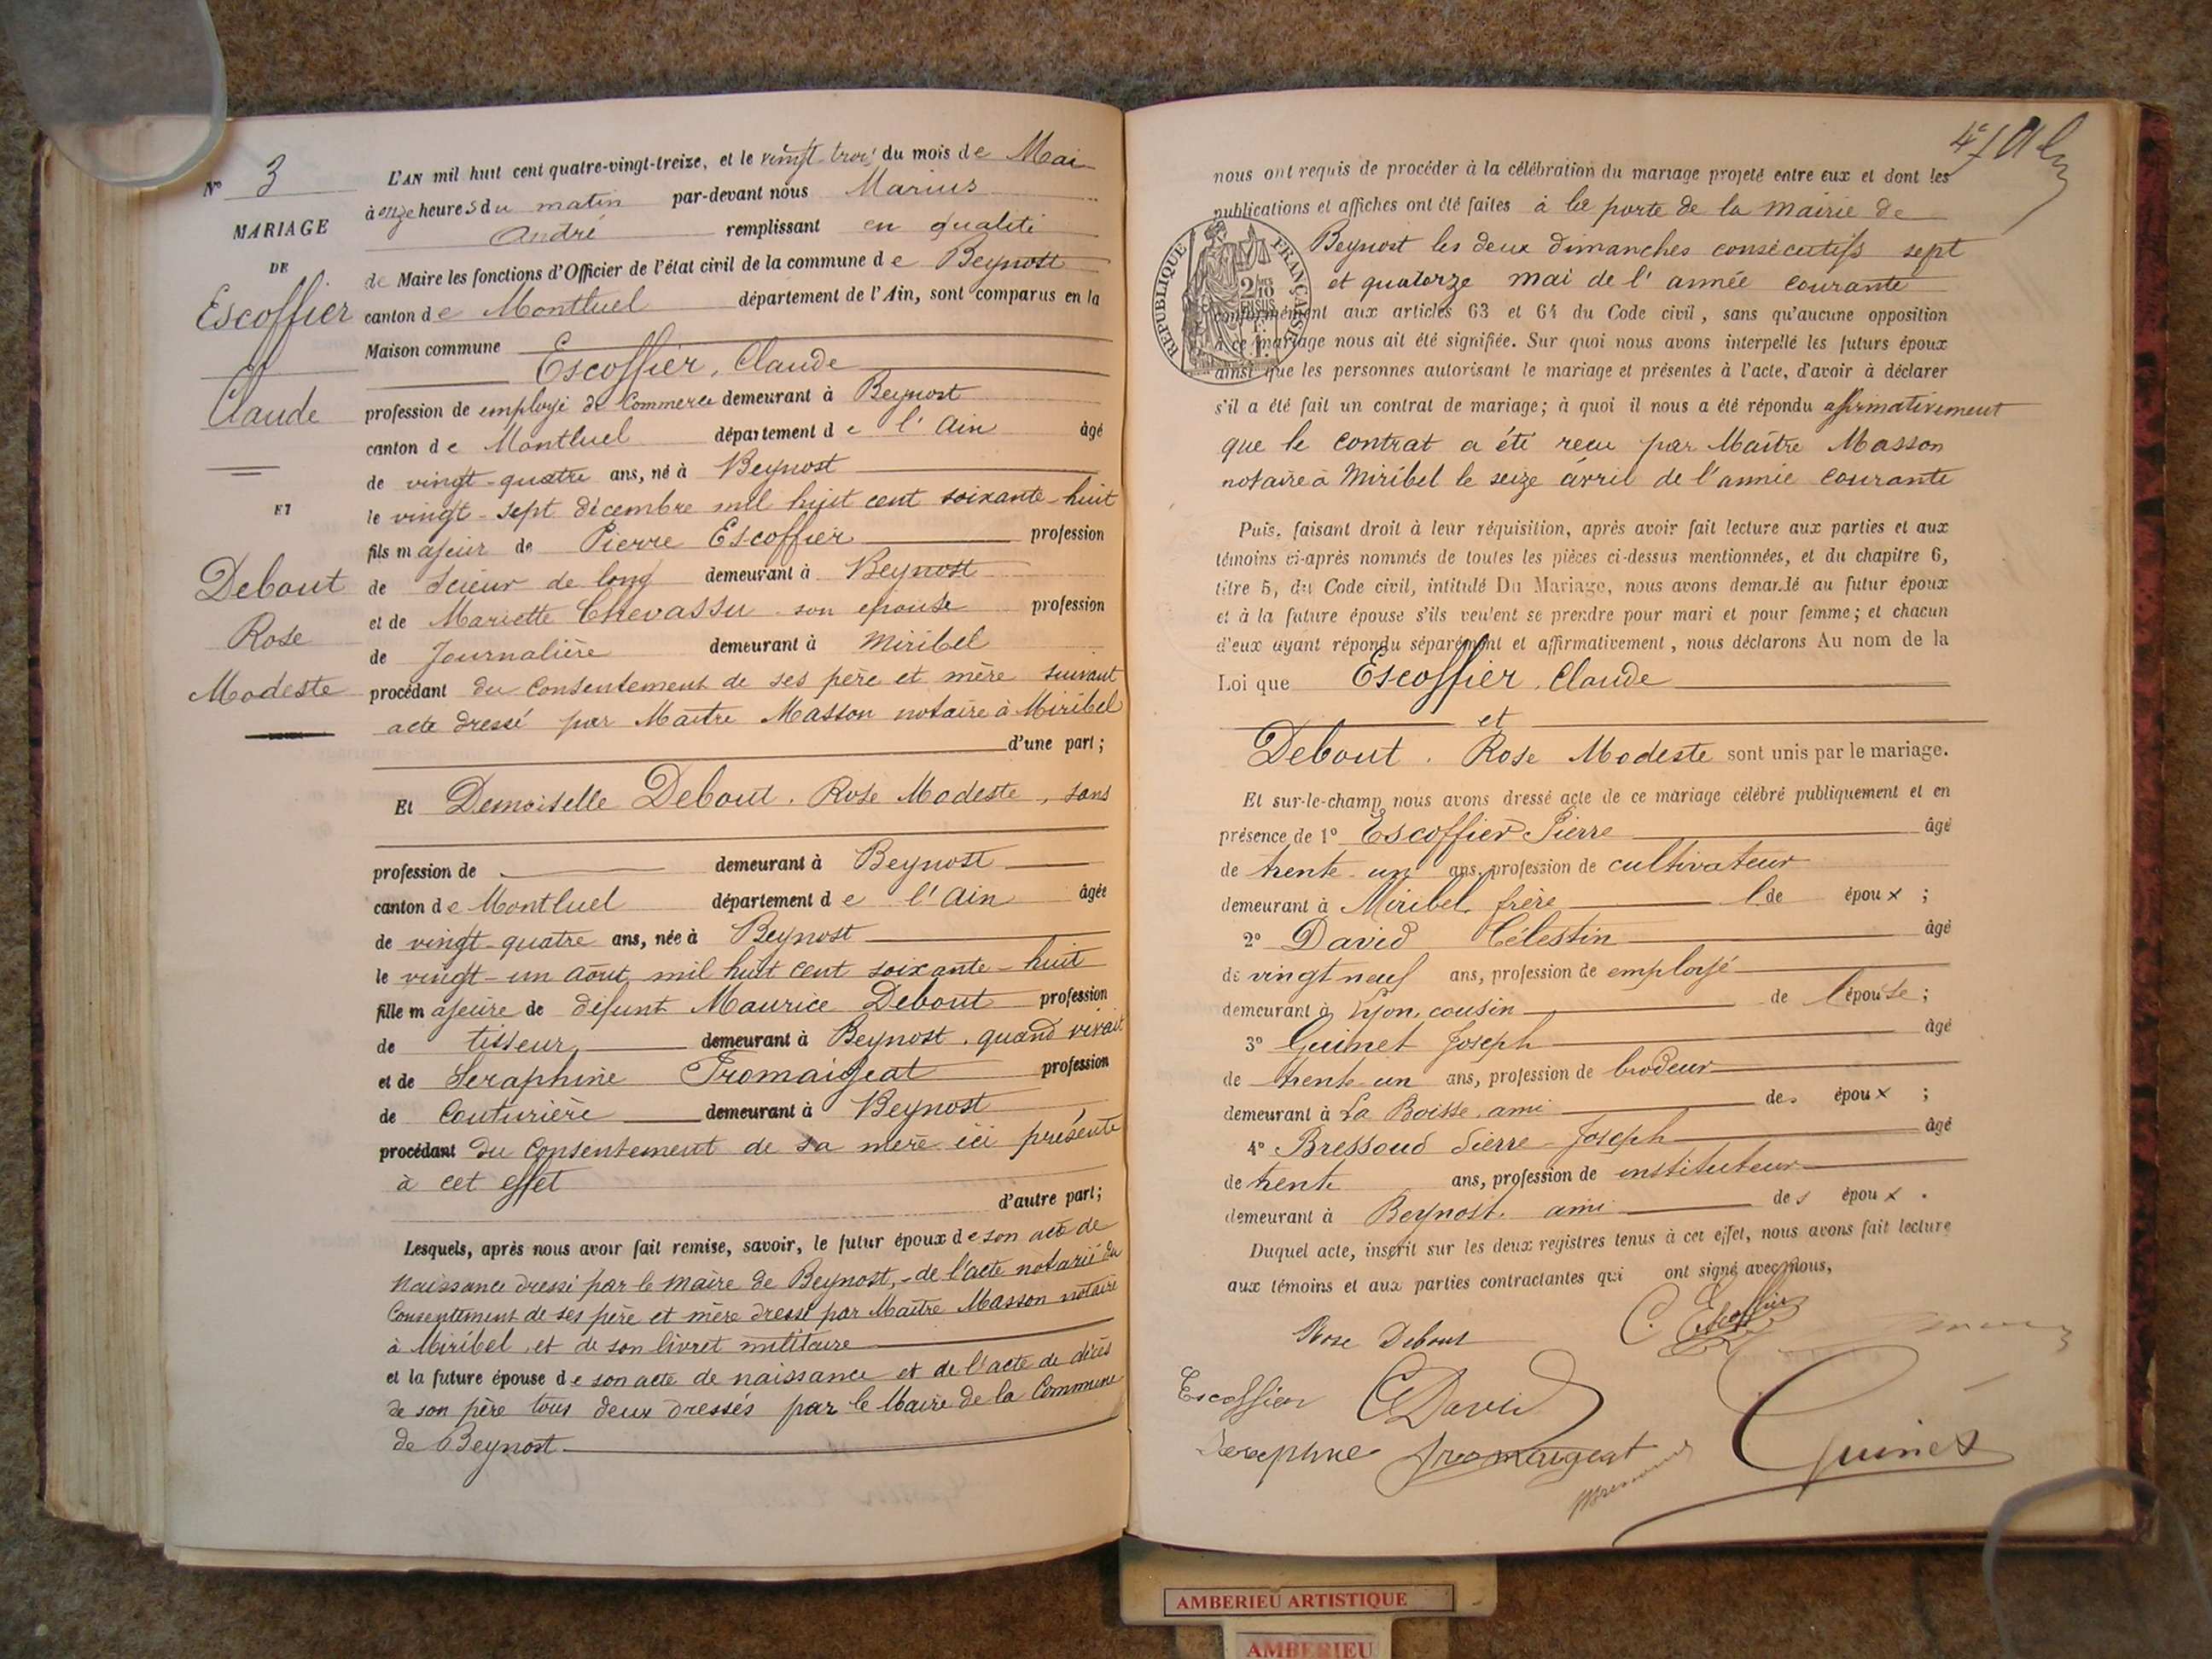 Nº 3
MARIAGE
DE
Escoffier
Claude
ET
Debout
Rose
Modeste
L'AN mil huit cent quatre-vingt-treize, et le vingt-trois du mois de Mai
à onze heures du matin par-devant nous Marius
André remplissant en qualité
de Maire les fonctions d'Officier de l'état civil de la commune de Beynost
canton de Montluel département de l'Ain, sont comparus en la
Maison commune
Escoffier, Claude
profession de employé de Commerce demeurant à Beynost
canton de Montluel département de l'Ain âgé
de vingt-quatre ans, né à Beynost
le vingt-sept décembre mil huit cent soixante-huit
fils majeur de Pierre Escoffier profession
de Scieur de long demeurant à Beynost
et de Mariette Chevassu son épouse profession
de Journalière demeurant à Miribel
procédant du consentement de ses père et mère suivant
acte dressé par Maître Masson notaire à Miribel
d'une part;
Et Demoiselle Debout, Rose Modeste, sans
profession de demeurant à Beynost
canton de Montluel département de l'Ain âgée
de vingt-quatre ans, née à Beynost
le vingt-un août mil huit cent soixante-huit
fille majeure de défunt Maurice Debout profession
de tisseur demeurant à Beynost, quand vivait
et de Seraphine Fromaigeat profession
de Couturière demeurant à Beynost
procédant du consentement de sa mère ici présente
à cet effet
d'autre part;
Lesquels, après nous avoir fait remise, savoir, le futur époux de son acte de
naissance dressé par le maire de Beynost, de l'acte notarié du
Consentement de ses père et mère dressé par Maître Masson notaire
à Miribel, et de son livret militaire
et la future épouse de son acte de naissance et de l'acte de décès
de son père tous deux dressés par le Maire de la Commune
de Beynost
nous ont requis de procéder à la célébration du mariage projeté entre eux et dont les
publications et affiches ont été faites à la porte de la mairie de
Beynost les deux dimanches consécutifs sept
et quatorze mai de l'année courante
conformément aux articles 63 et 64 du Code civil, sans qu'aucune opposition
à ce mariage nous ait été signifiée. Sur quoi nous avons interpellé les futurs époux
ainsi que les personnes autorisant le mariage et présentes à l'acte, d'avoir à déclarer
s'il a été fait un contrat de mariage; à quoi il nous a été répondu affirmativement
que le contrat a été reçu par Maître Masson
notaire à Miribel le seize avril de l'année courante
Puis, faisant droit à leur réquisition, après avoir fait lecture aux parties et aux
témoins ci-après nommés de toutes les pièces ci-dessus mentionnées, et du chapitre 6,
titre 5, du Code civil, intitulé Du Mariage, nous avons demandé au futur époux
et à la future épouse s'ils veulent se prendre pour mari et pour femme; et chacun
d'eux ayant répondu séparément et affirmativement, nous déclarons Au nom de la
Loi que Escoffier, Claude
et
Debout, Rose Modeste sont unis par le mariage.
Et sur-le-champ nous avons dressé acte de ce mariage célébré publiquement et en
présence de 1º Escoffier Pierre âgé
de trente-un ans, profession de cultivateur
demeurant à Miribel, frère de l'époux;
2º David Célestin âgé
de vingt neuf ans, profession de employé
demeurant à Lyon, cousin de l'épouse;
3º Guinet Joseph âgé
de trente-un ans, profession de brodeur
demeurant à La Boisse, ami des époux;
4º Bressoud Pierre-Joseph âgé
de trente ans, profession de instituteur
demeurant à Beynost, ami des époux.
Duquel acte, inscrit sur les deux registres tenus à cet effet, nous avons fait lecture
aux témoins et aux parties contractantes qui ont signé avec nous,
Rose Debout C. Escoffier
Escoffier C David
Seraphine Fromaigeat Guinet
Bressoud
RÉPUBLIQUE FRANÇAISE
2/10 EN SUS
AMBERIEU ARTISTIQUE
AMBERIEU